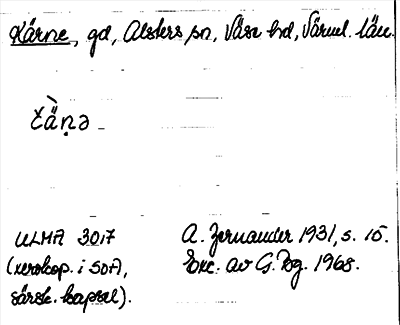 Kärne, gd, Alsters sn, Väse hd, Värml. län.
t̆ä̀ṇə
ULMA 3017
(xerokop. i SOA,
särsk. kapsel).
A. Zernander 1931, s. 15.
Exc. av G. Bg. 1968.